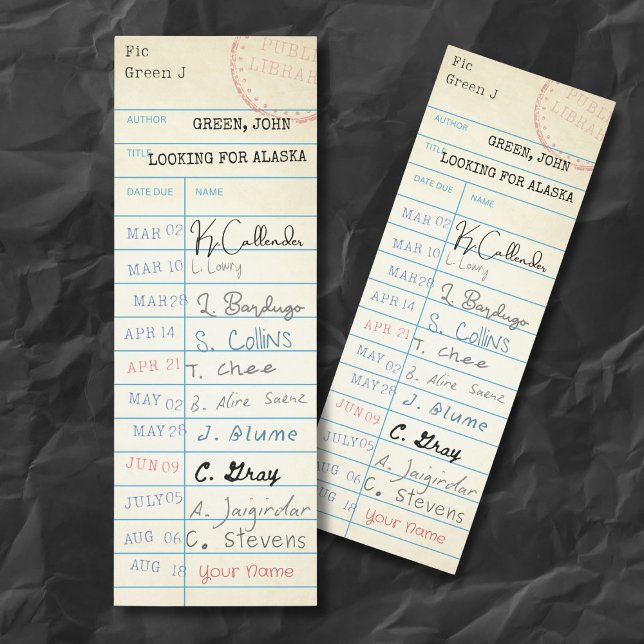 Fic
Green J
PUBLIC
LIBRARY
AUTHOR GREEN, JOHN
TITLE LOOKING FOR ALASKA
DATE DUE NAME
MAR 02 K. Callender
MAR 10 L. Lowry
MAR 28 L. Bardugo
APR 14 S. Collins
APR 21 T. Chee
MAY 02 B. Alire Saenz
MAY 28 J. Blume
JUN 09 C. Gray
JULY 05 A. Jaigirdar
AUG 06 C. Stevens
AUG 18 Your Name
Fic
Green J
PUBLIC
LIBRARY
AUTHOR GREEN, JOHN
TITLE LOOKING FOR ALASKA
DATE DUE NAME
MAR 02 K. Callender
MAR 10 L. Lowry
MAR 28 L. Bardugo
APR 14 S. Collins
APR 21 T. Chee
MAY 02 B. Alire Saenz
MAY 28 J. Blume
JUN 09 C. Gray
JULY 05 A. Jaigirdar
AUG 06 C. Stevens
AUG 18 Your Name